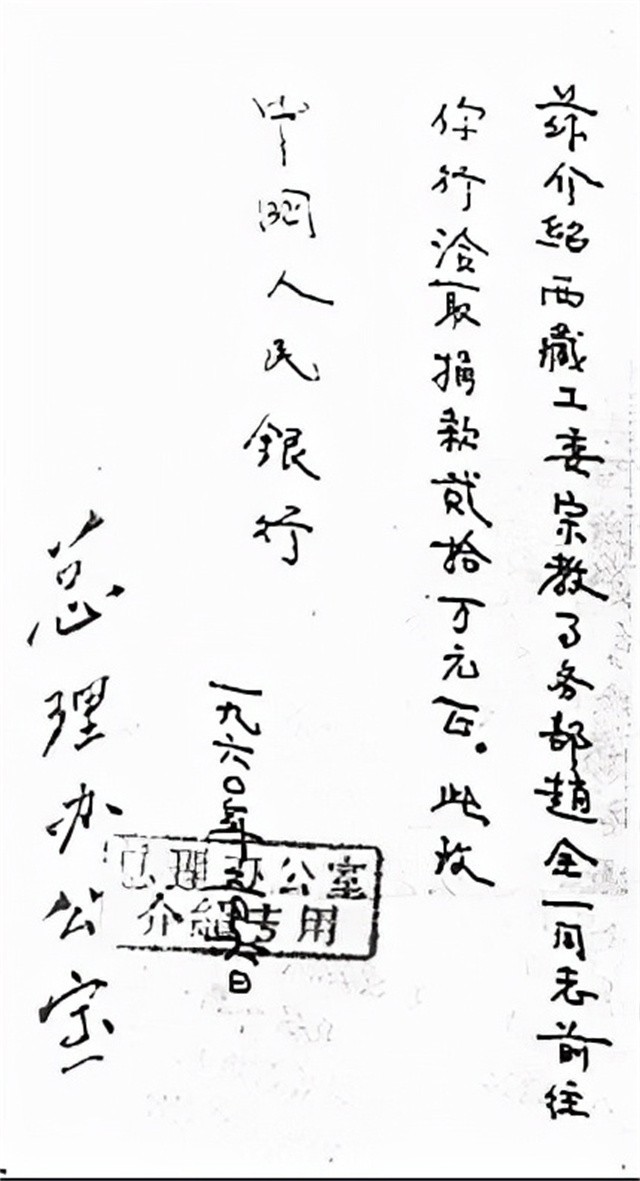 兹介紹西藏工委宗教事务部趙全一同志前往
你行洽取捐款貳拾万元正。此致
中國人民銀行
一九六〇年日
总理办公室
总理办公室
介紹专用